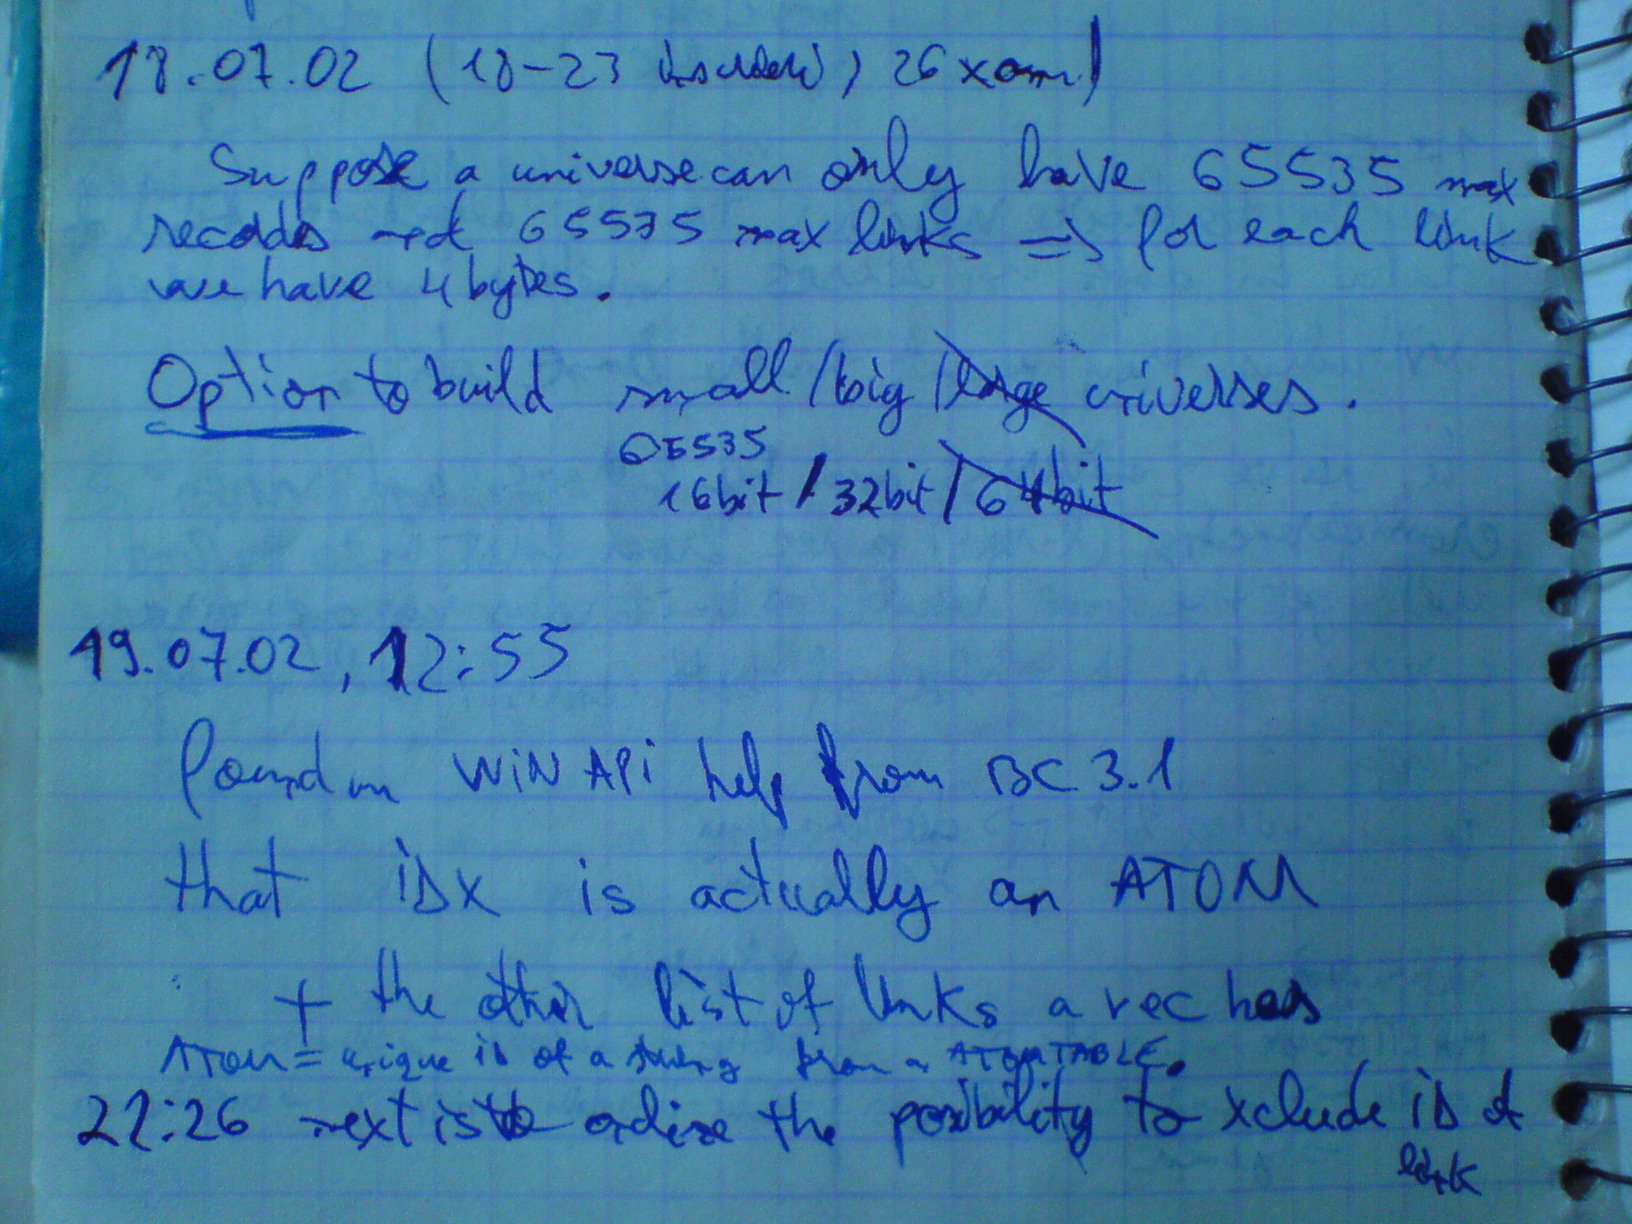 18.07.02 (18-23 , 26 xam)
Suppose a universe can only have 65535 max
records and 65535 max links => for each link
we have 4 bytes.
Option to build small/big/large universes.
65535
16bit/32bit/64bit
19.07.02, 12:55
found in WiN APi help from BC 3.1
that iDx is actually an ATOM
+ the other list of links a rec has
ATOM = unique iD of a string from a ATOMTABLE.
22:26 next is to the posibility to xclude iD of
link